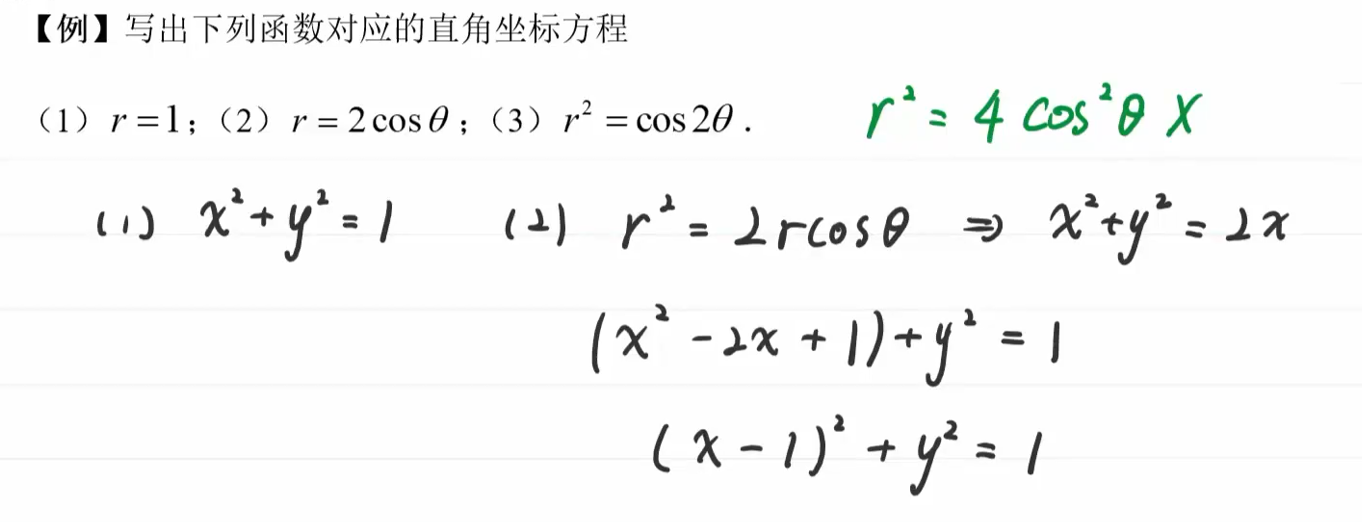 【例】写出下列函数对应的直角坐标方程
（1）r = 1；（2）r = 2cosθ；（3）r² = cos2θ.
r² = 4cos²θ X
(1) x² + y² = 1
(2) r² = 2rcosθ ⇒ x² + y² = 2x
(x² - 2x + 1) + y² = 1
(x - 1)² + y² = 1